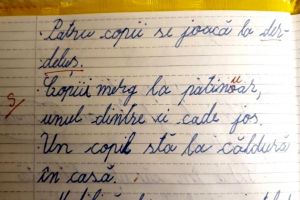 Patru copii se joacă la der-
deluș.
Copiii merg la patinuoar,
unul dintre ei cade jos.
Un copil stă la căldură
în casă.